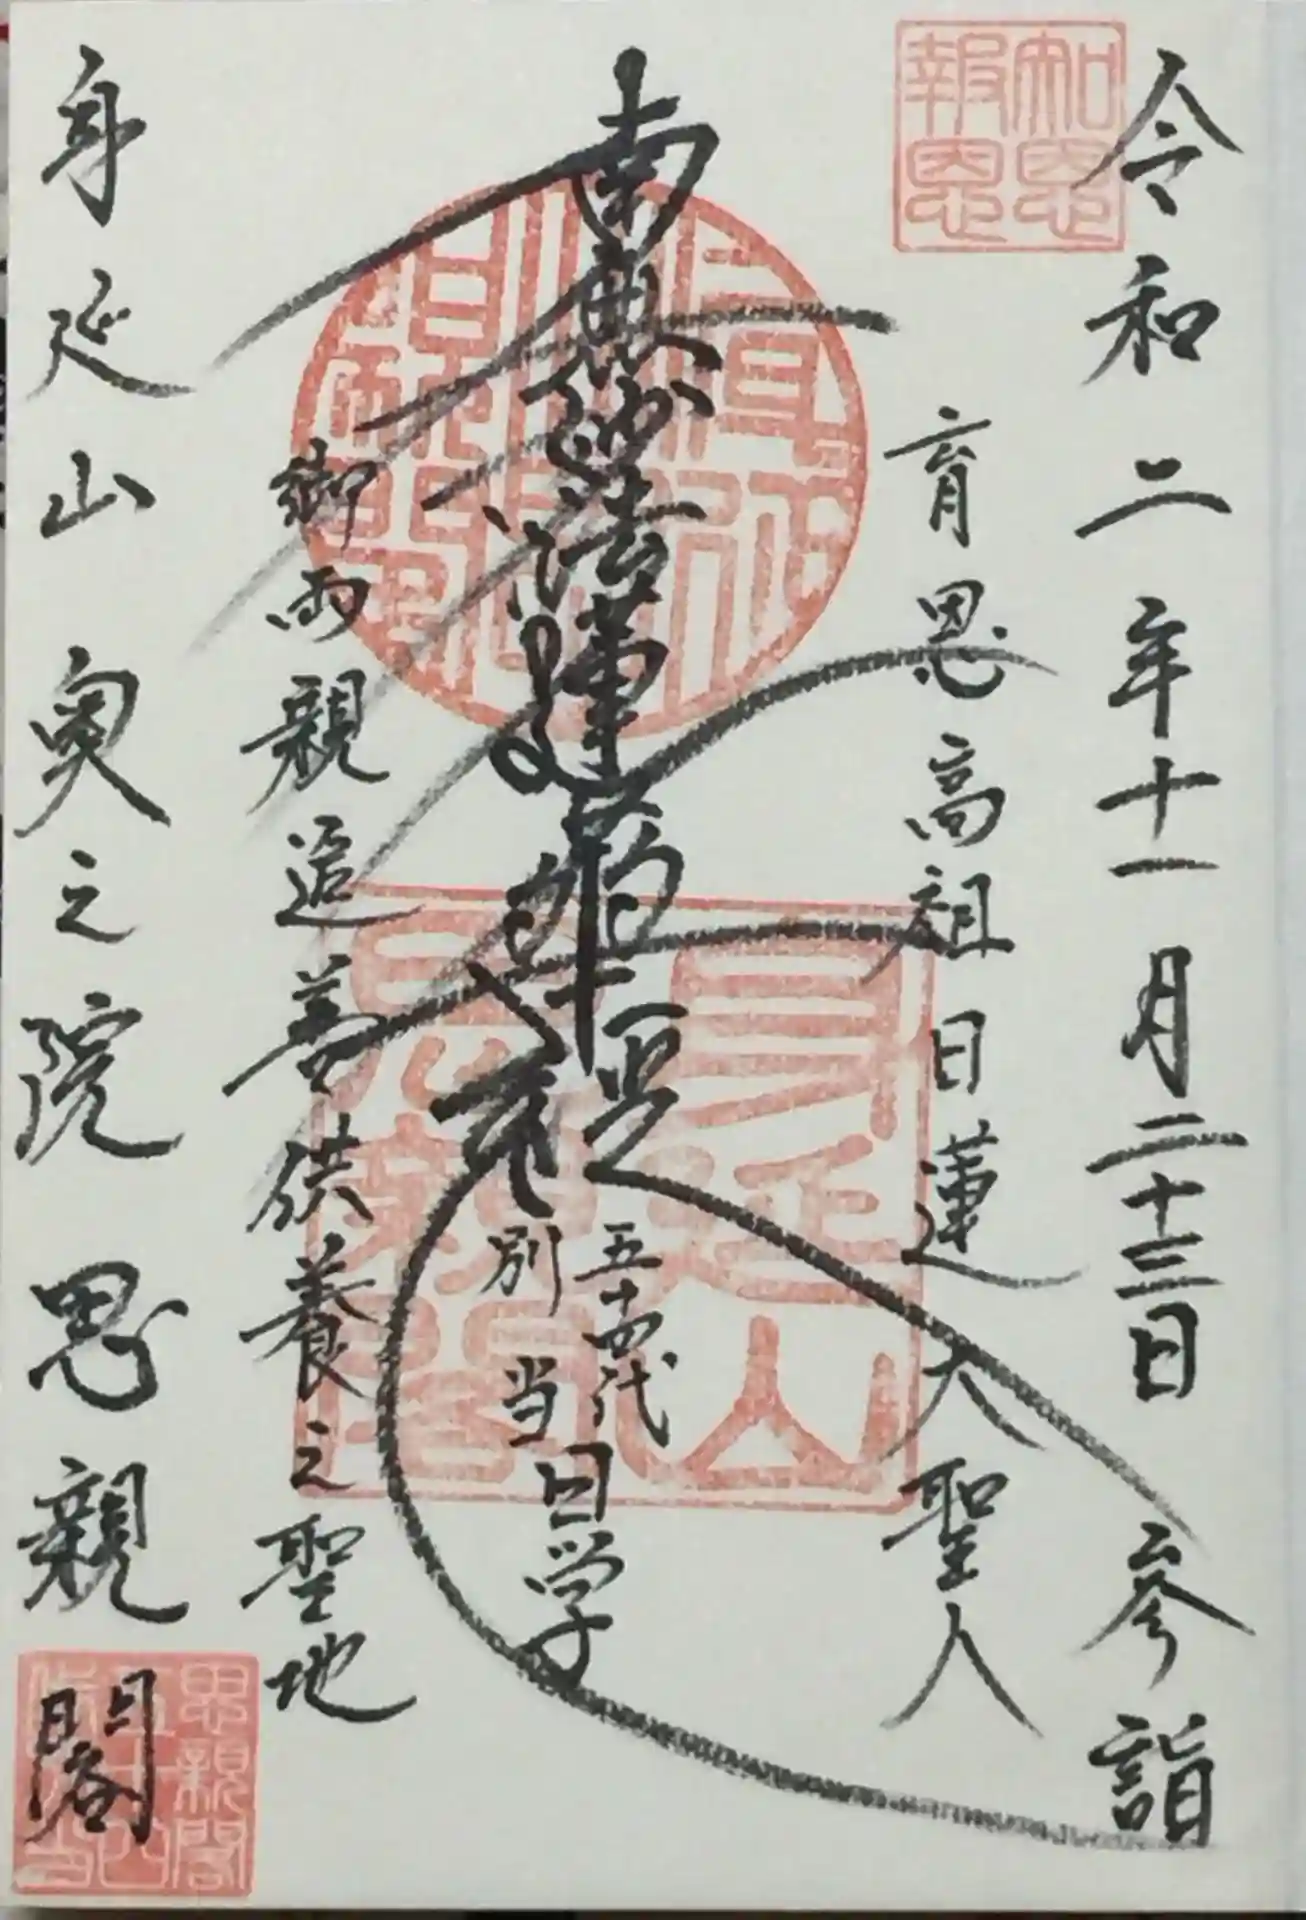 令和二年十一月二十三日 参詣
知恩報恩
育恩高祖日蓮大聖人
南無妙法蓮華経
五十四代
別当
日学
御両親追善供養之聖地
身延山奥之院思親閣